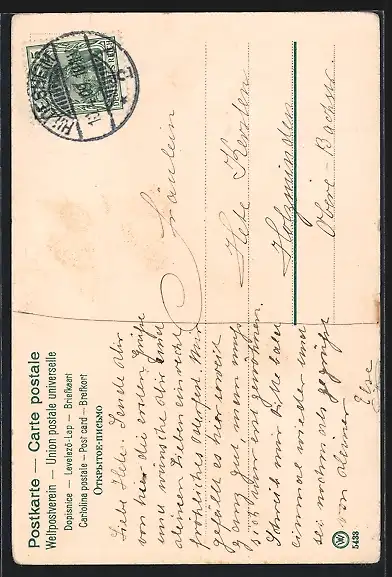 Postkarte — Carte postale
Weltpostverein — Union postale universelle
Dopisnice — Levelezö-Lap — Briefkaart
Cartolina postale — Post card — Brefkort
Открытое-письмо
HILDESHEIM
Fräulein
Hete Kersten
Holzminden
Obere-Bachstr.
Liebe Hete. Sende Dir
von hier die ersten Grüße
und wünsche Dir und
deinen Lieben ein recht
fröhliches Osterfest. Mir
gefällt es hier soweit
ganz gut man muß
sich nur erst gewöhnen.
Schreib mir bitte bald
einmal wieder und
sei nochmals gegrüßt
von deiner
Else
W
5433